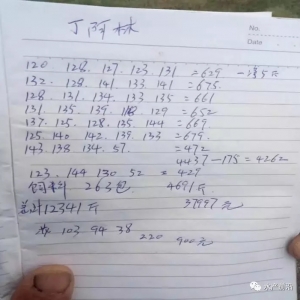 丁阿林
No.
Date
120 128. 127. 123. 131 =629
132. 128. 141. 133. 141 =675
128. 131. 134. 133. 135 =661
131. 135. 139. 129 =652
137. 125. 128. 135. 144 =669
125. 140. 142. 139. 133 =679
143. 138 134. 57. =472
4437-175=4262
123. 144 130 52 =429
饲料 263包 4691斤
总计12341斤 37997元
103 94 38
220 900元